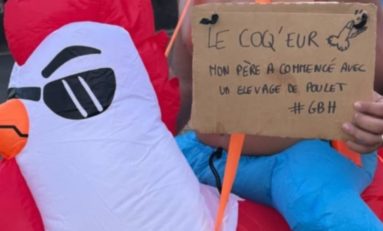 LE COQ'EUR
MON PÈRE A COMMENCÉ AVEC
UN ELEVAGE DE POULET
#GBH